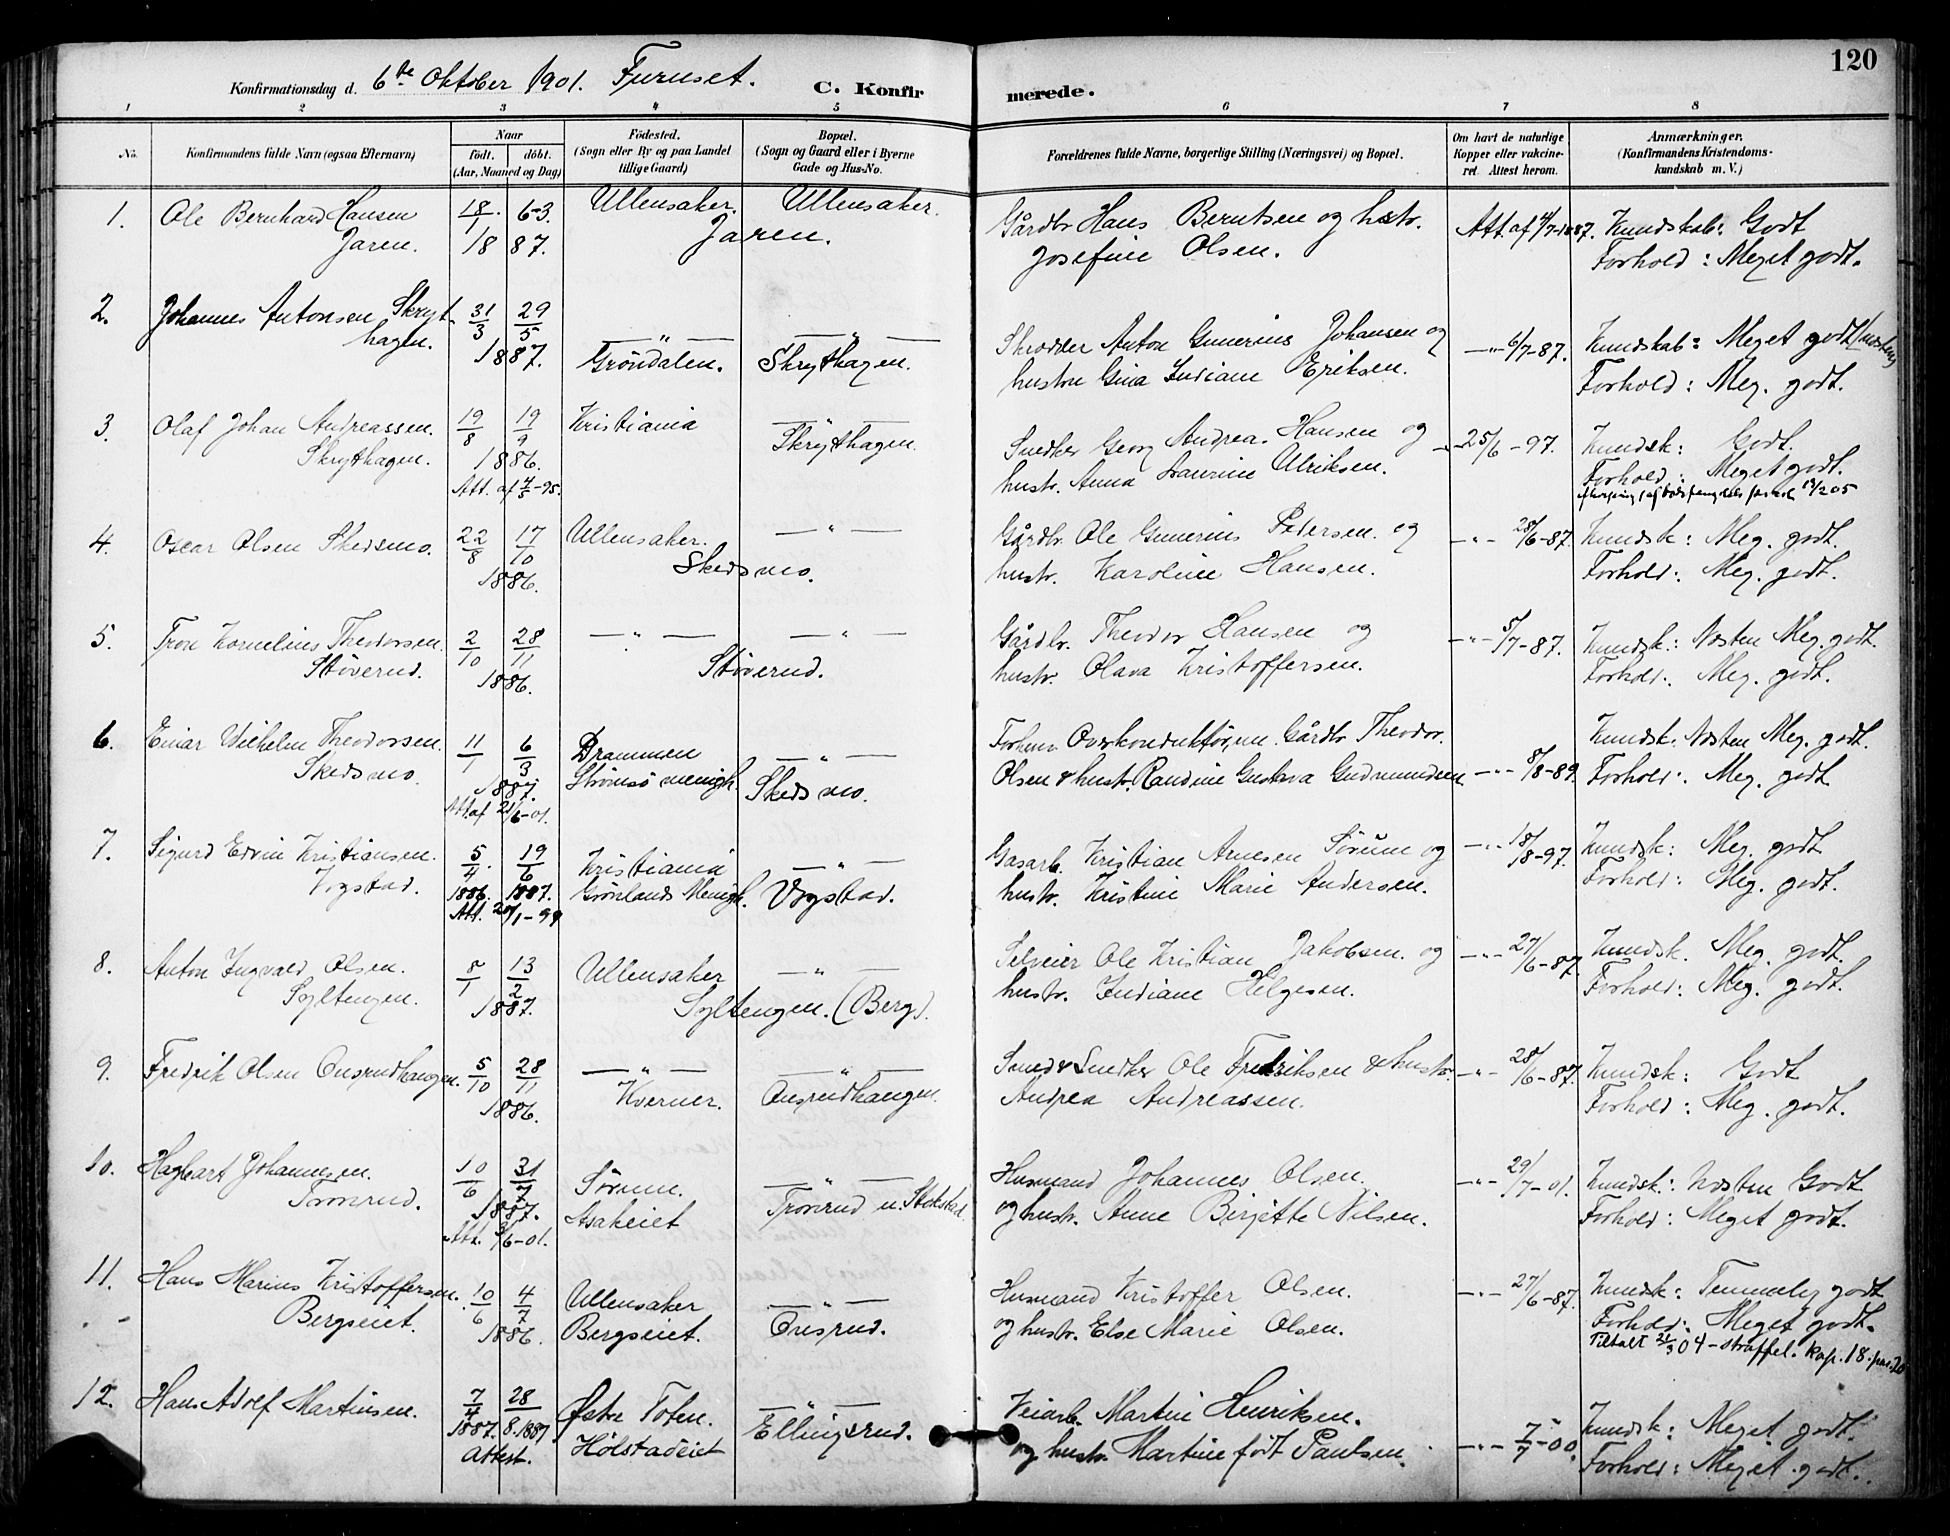 120
Konfirmationsdag d. 6te Oktober 1901. Furuset. C. Konfirmerede.
1 2 3 4 5 6 7 8
No. Konfirmandens fulde Navn (ogsaa Efternavn) Naar födt. döbt. (Aar, Maaned og Dag) Födested. (Sogn eller By og paa Landet tillige Gaard) Bopæl. (Sogn og Gaard eller i Byerne Gade og Hus-No. Forældrenes fulde Navne, borgerlige Stilling (Næringsvei) og Bopæl. Om havt de naturlige Kopper eller vakcineret. Attest herom. Anmærkninger. (Konfirmandens Kristendomskundskab m. V.)
1. Ole Bernhard Hansen 18/1 6-3. Ullensaker. Ullensaker. Gårdbr Hans Berntsen og hustr. Att. af 4/7-1887. Kundskab: Godt
Jaren. 1887. Jaren. Josefine Olsen. Forhold: Meget godt.
2. Johannes Antonsen Skryt- 31/3 29/5 —"— —"— Skrædder Anton Gunerius Johansen og —"— 6/7-87. Kundskab: Meget godt (næsten)
hagen. 1887. Gröndalen. Skrythagen. hustru Gina Indiane Eriksen. Forhold: Meg. godt.
3. Olaf Johan Andreassen. 19/8 19/9 Kristiania —"— Snedker Georg Andrea. Hansen og —"— 25/6-97. Kundsk: Godt.
Skrythagen. 1886. Skrythagen. hustr. Anna Laurine Ulriksen. Forhold: Meget godt.
Att. af 4/5-95.
4. Oscar Olsen Skedsmo. 22/8 17/10 Ullensaker. —"— Gårdbr. Ole Gunerius Pedersen og —"— 28/6-87. Kundsk: Meg. godt.
1886. Skedsmo. hustr. Karoline Hansen. Forhold: Meg. godt.
5. Tron Kornelius Theodorsen 2/10 28/11 —"— —"— Gårdbr. Theodor Hansen og —"— 5/7-87. Kundsk.: Næsten Meg. godt.
Stöverud. 1886. Stöverud. hustr. Olava Kristoffersen. Forhold: Meg. godt.
6. Einar Wilhelm Theodorsen. 11/1 6/3 Drammen —"— Forhenv. Overkonduktör, nu Gårdbr Theodor Kundsk: Næsten Meg. godt.
Skedsmo. 1887. Strömsö menigh. Skedsmo. Olsen & hustr. Randine Gustava Gudmundsen —"— 8/8-89. Forhold: Meg. godt.
Att. af 21/6-01.
7. Sigurd Edvin Kristiansen. 5/4 19/6 Kristiania —"— Gasarb. Kristian Arnesen Sörum og —"— 18/8-97. Kundsk: Meg. godt
Vogstad. 1886. 1887. Grönlands Menigh. Vogstad. hustr. Kristine Marie Andersen. Forhold: Meg. godt.
8. Anton Ingvald Olsen. 8/1 13/2 Ullensaker —"— Selveier Ole Kristian Jakobsen og —"— 27/6-87. Kundsk. Meg. godt.
Syltengen. 1887. Syltengen. (Berg). hustr. Indiane Helgesen. Forhold: Meg. godt.
9. Fredrik Olsen Onsrudhaugen. 5/10 28/11 —"— —"— Smed & Snedker Ole Fredriksen & hustr. —"— 28/6-87. Kundsk: Godt
1886. Kverner. Onsrudhaugen. Andrea Andreassen. Forhold: Meg. godt.
10. Hagbart Johannesen. 10/6 31/7 Sörum. —"— Husmand Johannes Olsen. —"— 29/7-01. Kundsk: Næsten Godt
Trönrud. 1887. Asakeiet Trönrud u. Stokstad og hustr. Anne Birgitte Nilsen. Forhold: Meget godt.
11. Hans Marius Kristoffersen. 10/6 4/7 Ullensaker —"— Husmand Kristoffer Olsen. —"— 27/6-87. Kundsk: Temmelig godt
Bergseiet. 1886. Bergseiet. Onsrud. og hustr. Else Marie Olsen. Forhold: Meget godt.
Tiltalt 21/3 04 - straffel. kap. 18. par. 20
12. Hans Adolf Martinsen. 7/4 28 Østre Toten. —"— Veiarb. Martin Henriksen. Kundsk: Meget godt.
1887. 8.1887 Hölstadeiet Ellingsrud. og hustr. Martine född Paulsen. —"— 7/7-00. Forhold: Meget godt.
Attest.